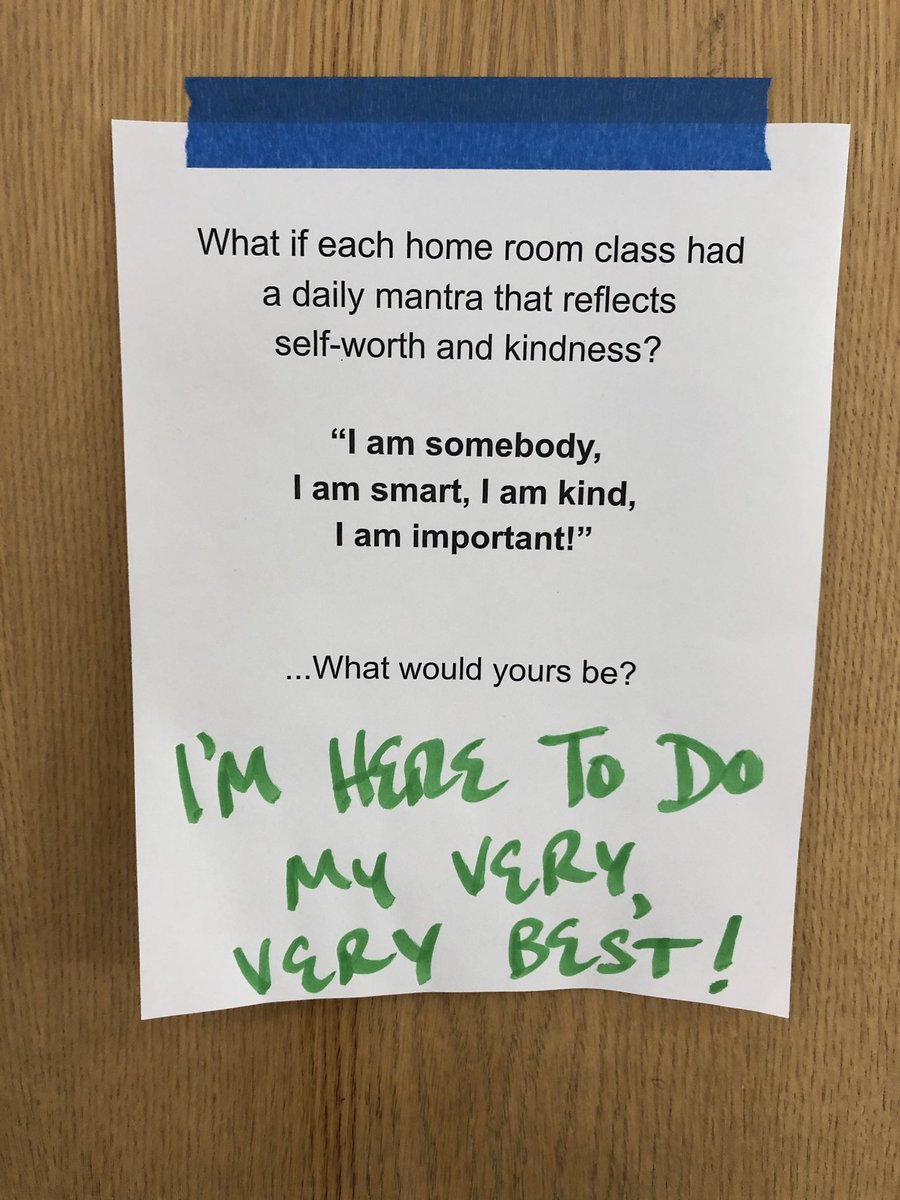 What if each home room class had
a daily mantra that reflects
self-worth and kindness?
“I am somebody,
I am smart, I am kind,
I am important!”
...What would yours be?
I'M HERE TO DO
MY VERY,
VERY BEST!